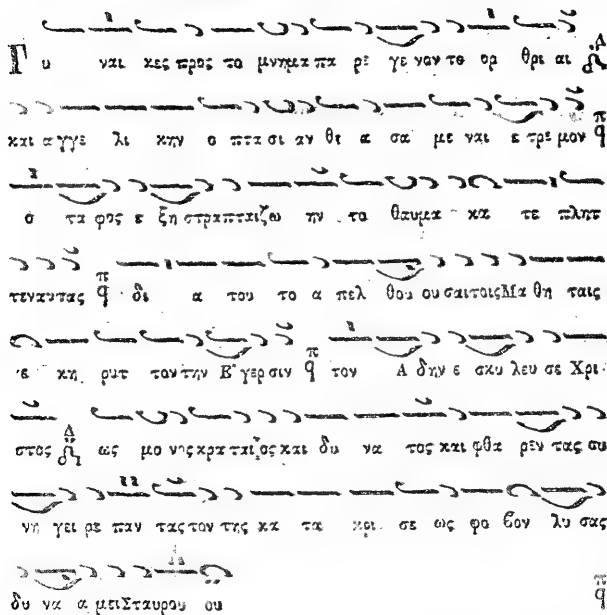 Γυ ναι κες προς το μνημα πα ρε γε νον το ορ θρι αι
και α γγε λι κην ο πτα σι αν θε α σα με ναι ε τρε μον
ο τα φος ε ξη στραπται ζω ην το θαυμα κα τε πλητ
τεν αυτας δι α του το α πελ θου ου σαι τοις Μα θη ταις
ε κη ρυτ τον την Ε γερσιν τον Α δην ε σκυ λευ σε Χρι
στος ως μο νος κρα ται ος και δυ να τος και φθα ρεν τας συ
νη γει ρε παν τας τον της κα τα κρι σε ως φο βον λυ σας
δυ να α μει Σταυρου ου